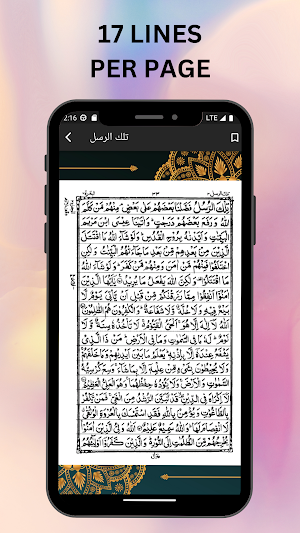 17 LINES
PER PAGE
2:16 LTE
تلك الرسل
تلك الرسل ٣ ٣٣ البقرة ٢
تِلْكَ الرُّسُلُ فَضَّلْنَا بَعْضَهُمْ عَلٰى بَعْضٍ مِنْهُمْ مَّنْ كَلَّمَ
اللّٰهُ وَرَفَعَ بَعْضَهُمْ دَرَجٰتٍ وَاٰتَيْنَا عِيْسَى ابْنَ مَرْيَمَ
الْبَيِّنٰتِ وَاَيَّدْنٰهُ بِرُوْحِ الْقُدُسِ وَلَوْ شَآءَ اللّٰهُ مَا اقْتَتَلَ
الَّذِيْنَ مِنْۢ بَعْدِهِمْ مِّنْۢ بَعْدِ مَا جَآءَتْهُمُ الْبَيِّنٰتُ وَلٰكِنِ
اخْتَلَفُوْا فَمِنْهُمْ مَّنْ اٰمَنَ وَمِنْهُمْ مَّنْ كَفَرَ وَلَوْ شَآءَ اللّٰهُ
مَا اقْتَتَلُوْا وَلٰكِنَّ اللّٰهَ يَفْعَلُ مَا يُرِيْدُ يٰٓاَيُّهَا الَّذِيْنَ
اٰمَنُوْٓا اَنْفِقُوْا مِمَّا رَزَقْنٰكُمْ مِّنْ قَبْلِ اَنْ يَّاْتِيَ يَوْمٌ لَّا
بَيْعٌ فِيْهِ وَلَا خُلَّةٌ وَّلَا شَفَاعَةٌ وَالْكٰفِرُوْنَ هُمُ الظّٰلِمُوْنَ
اَللّٰهُ لَآ اِلٰهَ اِلَّا هُوَ اَلْحَيُّ الْقَيُّوْمُ لَا تَاْخُذُهٗ سِنَةٌ وَّلَا
نَوْمٌ لَهٗ مَا فِي السَّمٰوٰتِ وَمَا فِي الْاَرْضِ مَنْ ذَا الَّذِيْ
يَشْفَعُ عِنْدَهٗٓ اِلَّا بِاِذْنِهٖ يَعْلَمُ مَا بَيْنَ اَيْدِيْهِمْ وَمَا خَلْفَهُمْ
وَلَا يُحِيْطُوْنَ بِشَيْءٍ مِّنْ عِلْمِهٖٓ اِلَّا بِمَا شَآءَ وَسِعَ كُرْسِيُّهُ
السَّمٰوٰتِ وَالْاَرْضَ وَلَا يَـُٔوْدُهٗ حِفْظُهُمَا وَهُوَ الْعَلِيُّ الْعَظِيْمُ
لَآ اِكْرَاهَ فِي الدِّيْنِ قَدْ تَّبَيَّنَ الرُّشْدُ مِنَ الْغَيِّ فَمَنْ يَّكْفُرْ
بِالطَّاغُوْتِ وَيُؤْمِنْۢ بِاللّٰهِ فَقَدِ اسْتَمْسَكَ بِالْعُرْوَةِ الْوُثْقٰى
لَا انْفِصَامَ لَهَا وَاللّٰهُ سَمِيْعٌ عَلِيْمٌ اَللّٰهُ وَلِيُّ الَّذِيْنَ اٰمَنُوْا
يُخْرِجُهُمْ مِّنَ الظُّلُمٰتِ اِلَى النُّوْرِ وَالَّذِيْنَ كَفَرُوْٓا اَوْلِيٰٓـُٔهُمُ